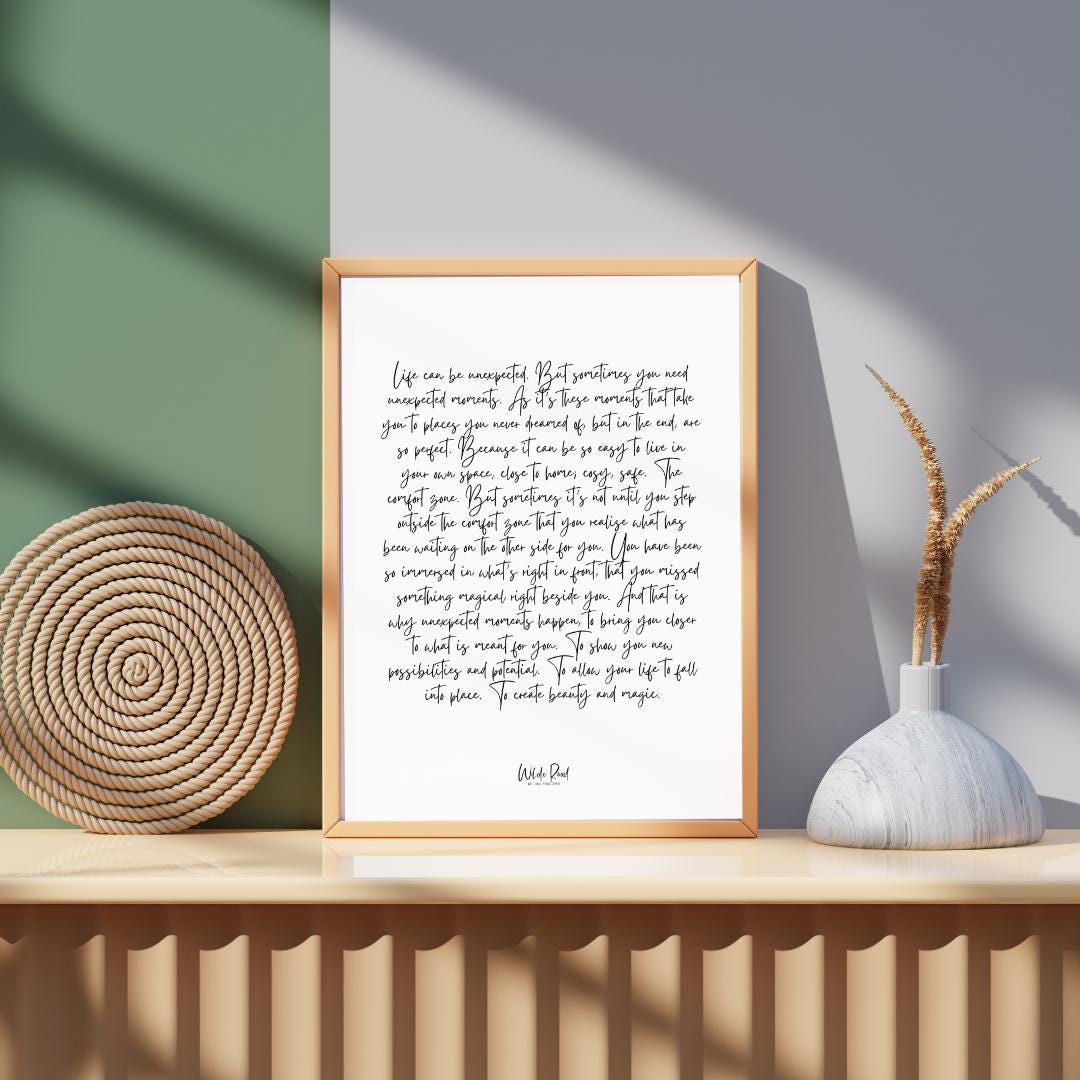 Life can be unexpected. But sometimes you need
unexpected moments. As it's these moments that take
you to places you never dreamed of, but in the end, are
so perfect. Because it can be so easy to live in
your own space, close to home, cosy, safe. The
comfort zone. But sometimes it's not until you step
outside the comfort zone that you realise what has
been waiting on the other side for you. You have been
so immersed in what's right in front, that you missed
something magical right beside you. And that is
why unexpected moments happen, to bring you closer
to what is meant for you. To show you new
possibilities and potential. To allow your life to fall
into place. To create beauty and magic.
Wilde Road